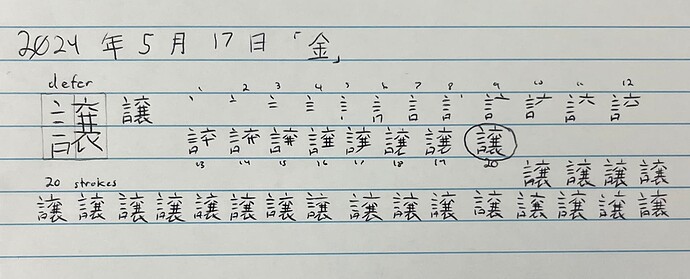 2024 年 5 月 17 日 「金」
defer
譲 譲
1 2 3 4 5 6 7 8 9 10 11 12
13 14 15 16 17 18 19 20
譲
20 strokes
譲 譲 譲 譲
譲 譲 譲 譲 譲 譲 譲 譲 譲 譲 譲 譲 譲 譲 譲 譲